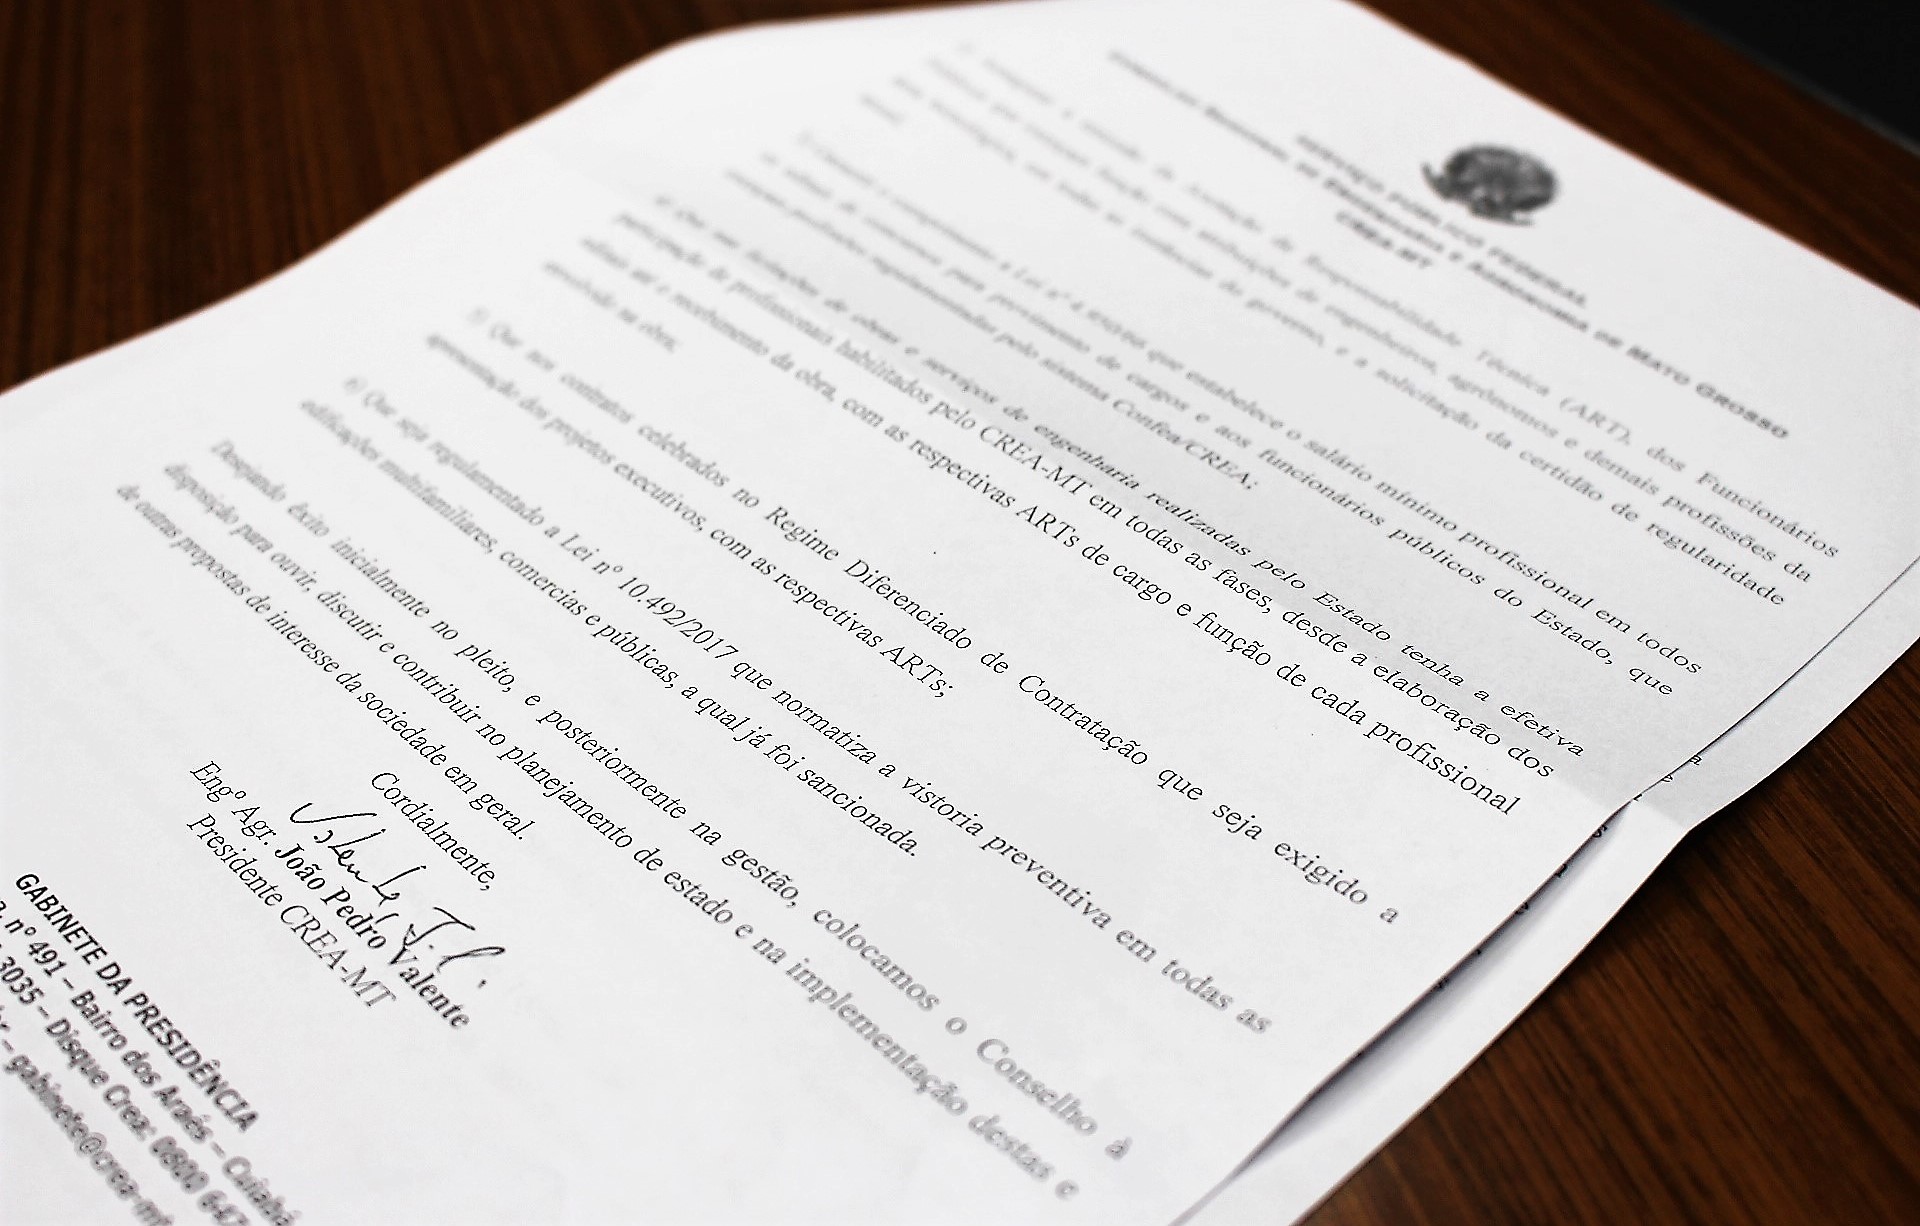 SERVIÇO PÚBLICO FEDERAL
CONSELHO REGIONAL DE ENGENHARIA E AGRONOMIA DE MATO GROSSO
CREA-MT
a Anotação de Responsabilidade Técnica (ART), dos Funcionários
Públicos que com atribuições de engenheiros, agrônomos e demais profissões da
área tecnológica, em todas as do governo, e a solicitação da certidão de regularidade
a Lei nº que estabelece o salário mínimo profissional em todos
os editais de concursos para provimento de cargos e aos funcionários públicos do Estado, que
profissões regulamentadas pelo sistema Confea/CREA;
4) Que nas licitações de obras e serviços de engenharia realizadas pelo Estado tenha a efetiva
participação de profissionais habilitados pelo CREA-MT em todas as fases, desde a elaboração dos
editais até o recebimento da obra, com as respectivas ARTs de cargo e função de cada profissional
envolvido na obra;
5) Que nos contratos celebrados no Regime Diferenciado de Contratação que seja exigido a
apresentação dos projetos executivos, com as respectivas ARTs;
6) Que seja regulamentado a Lei nº 10.492/2017 que normatiza a vistoria preventiva em todas as
edificações multifamiliares, comercias e públicas, a qual já foi sancionada.
Desejando êxito inicialmente no pleito, e posteriormente na gestão, colocamos o Conselho à
disposição para ouvir, discutir e contribuir no planejamento de estado e na implementação destas e
de outras propostas de interesse da sociedade em geral.
Cordialmente,
Engº Agr. João Pedro Valente
Presidente CREA-MT
GABINETE DA PRESIDÊNCIA
nº 491 – Bairro dos Araés – Cuiabá
3035 – Disque Crea: 0800 647
– gabinete@crea-mt